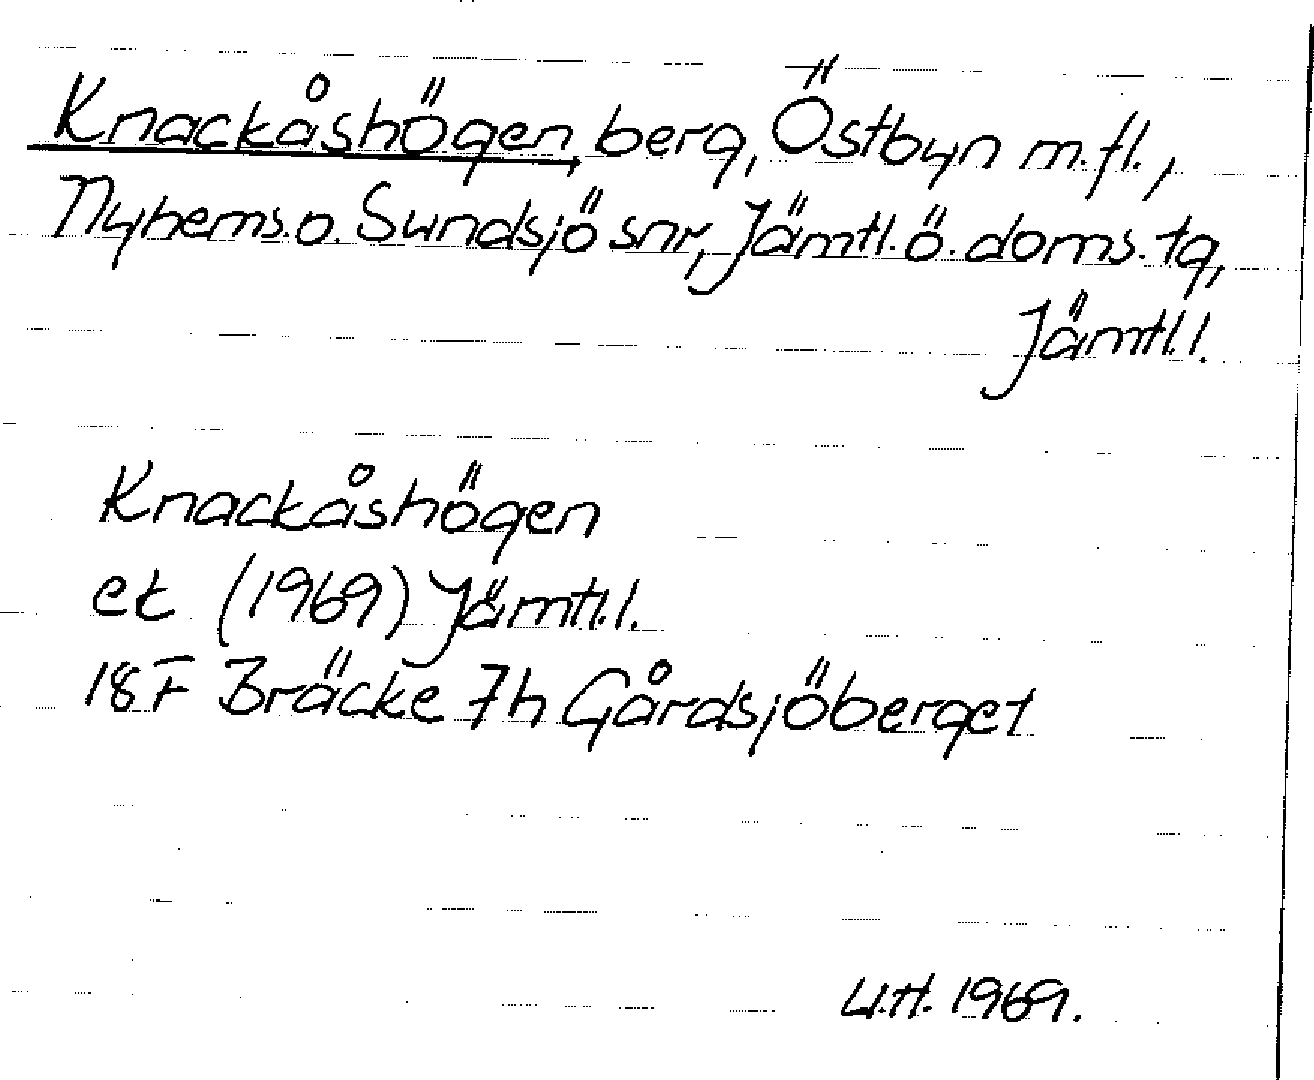 Knackåshögen berg, Östbyn m.fl.,
Nyhems o. Sundsjö snr, Jämtl. ö. doms. tg,
Jämtl. l.
Knackåshögen
ek (1969) Jämtl. l.
18F Bräcke 7h Gårdsjöberget
U.H. 1969.